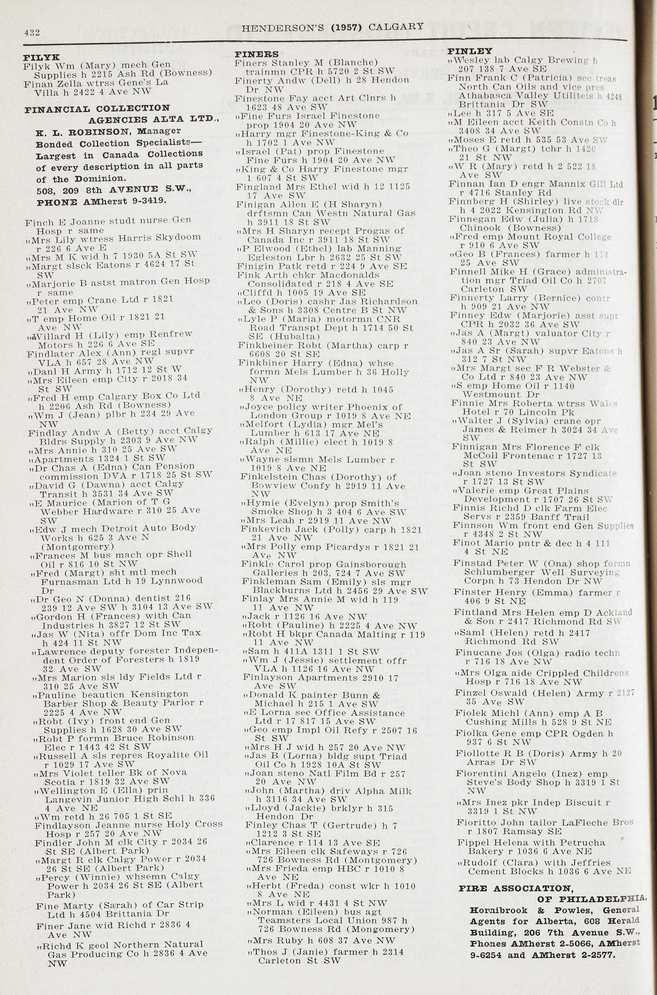 432
HENDERSON'S (1957) CALGARY
FILYK
Filyk Wm (Mary) mech Gen
Supplies h 2215 Ash Rd (Bowness)
Finan Zella wtrss Gene's La
Villa h 2422 4 Ave NW
FINANCIAL COLLECTION
AGENCIES ALTA LTD.,
K. L. ROBINSON, Manager
Bonded Collection Specialists—
Largest in Canada Collections
of every description in all parts
of the Dominion.
508, 209 8th AVENUE S.W.,
PHONE AMherst 9-3419.
Finch E Joanne studt nurse Gen
Hosp r same
„Mrs Lily wtress Harris Skydoom
r 226 6 Ave E
„Mrs M K wid h 7 1930 5A St SW
„Margt slsck Eatons r 4624 17 St
SW
„Marjorie B astst matron Gen Hosp
r same
„Peter emp Crane Ltd r 1821
21 Ave NW
„T emp Home Oil r 1821 21
Ave NW
„Willard H (Lily) emp Renfrew
Motors h 226 6 Ave SE
Findlater Alex (Ann) regl supvr
VLA h 657 28 Ave NW
„Danl H Army h 1712 12 St W
„Mrs Eileen emp City r 2018 34
St SW
„Fred H emp Calgary Box Co Ltd
h 2206 Ash Rd (Bowness)
„Wm J (Jean) plbr h 234 29 Ave
NW
Findlay Andw A (Betty) acct Calgy
Bldrs Supply h 2303 9 Ave NW
„Mrs Annie h 310 25 Ave SW
„Apartments 1324 1 St SW
„Dr Chas A (Edna) Can Pension
commission DVA r 1718 25 St SW
„David G (Dawna) acct Calgy
Transit h 3531 34 Ave SW
„E Maurice (Marion of T G
Webber Hardware r 310 25 Ave
SW
„Edw J mech Detroit Auto Body
Works h 625 3 Ave N
(Montgomery)
„Frances M bus mach opr Shell
Oil r 816 10 St NW
„Fred (Margt) sht mtl mech
Furnasman Ltd h 19 Lynnwood
Dr
„Dr Geo N (Donna) dentist 216
239 12 Ave SW h 3104 13 Ave SW
„Gordon H (Frances) with Can
Industries h 3827 12 St SW
„Jas W (Nita) offr Dom Inc Tax
h 424 11 St NW
„Lawrence deputy forester Indepen-
dent Order of Foresters h 1819
32 Ave SW
„Mrs Marion sls ldy Fields Ltd r
310 25 Ave SW
„Pauline beauticn Kensington
Barber Shop & Beauty Parlor r
2225 4 Ave NW
„Robt (Ivy) front end Gen
Supplies h 1628 30 Ave SW
„Robt P formn Bruce Robinson
Elec r 1443 42 St SW
„Russell A sls repres Royalite Oil
r 1029 17 Ave SW
„Mrs Violet teller Bk of Nova
Scotia r 1819 32 Ave SW
„Wellington E (Ella) prin
Langevin Junior High Schl h 336
4 Ave NE
„Wm retd h 26 705 1 St SE
Findlayson Jeanne nurse Holy Cross
Hosp r 257 20 Ave NW
Findler John M clk City r 2034 26
St SE (Albert Park)
„Margt R clk Calgy Power r 2034
26 St SE (Albert Park)
„Percy (Winnie) whsemn Calgy
Power h 2034 26 St SE (Albert
Park)
Fine Marty (Sarah) of Car Strip
Ltd h 4504 Brittania Dr
Finer Jane wid Richd r 2836 4
Ave NW
„Richd K geol Northern Natural
Gas Producing Co h 2836 4 Ave
NW
FINERS
Finers Stanley M (Blanche)
trainmn CPR h 5720 2 St SW
Finerty Andw (Dell) h 28 Hendon
Dr NW
Finestone Fay acct Art Clnrs h
1623 48 Ave SW
„Fine Furs Israel Finestone
prop 1904 20 Ave NW
„Harry mgr Finestone-King & Co
h 1702 1 Ave NW
„Israel (Pat) prop Finestone
Fine Furs h 1904 20 Ave NW
„King & Co Harry Finestone mgr
1 607 4 St SW
Fingland Mrs Ethel wid h 12 1125
17 Ave SW
Finigan Allen E (H Sharyn)
drftsmn Can Westn Natural Gas
h 3911 18 St SW
„Mrs H Sharyn recept Progas of
Canada Inc r 3911 18 St SW
„P Elwood (Ethel) lab Manning
Egleston Lbr h 2632 25 St SW
Finigin Patk retd r 224 9 Ave SE
Fink Arth chkr Macdonalds
Consolidated r 218 4 Ave SE
„Cliffd h 1005 19 Ave SE
„Leo (Doris) cashr Jas Richardson
& Sons h 3308 Centre B St NW
„Lyle P (Maria) motormn CNR
Road Transpt Dept h 1714 50 St
SE (Hubalta)
Finkbeiner Robt (Martha) carp r
6608 20 St SE
Finkbiner Harry (Edna) whse
formn Mels Lumber h 36 Holly
NW
„Henry (Dorothy) retd h 1045
8 Ave NE
„Joyce policy writer Phoenix of
London Group r 1019 8 Ave NE
„Melfort (Lydia) mgr Mel's
Lumber h 613 17 Ave NE
„Ralph (Millie) elect h 1019 8
Ave NE
„Wayne slsmn Mels Lumber r
1019 8 Ave NE
Finkelstein Chas (Dorothy) of
Bowview Confy h 2919 11 Ave
NW
„Hymie (Evelyn) prop Smith's
Smoke Shop h 3 404 6 Ave SW
„Mrs Leah r 2919 11 Ave NW
Finkevich Jack (Polly) carp h 1821
21 Ave NW
„Mrs Polly emp Picardys r 1821 21
Ave NW
Finkle Carol prop Gainsborough
Galleries h 203, 724 7 Ave SW
Finkleman Sam (Emily) sls mgr
Blackburns Ltd h 2456 29 Ave SW
Finlay Mrs Annie M wid h 119
11 Ave NW
„Jack r 1126 16 Ave NW
„Robt (Pauline) h 2225 4 Ave NW
„Robt H bkpr Canada Malting r 119
11 Ave NW
„Sam h 411A 1311 1 St SW
„Wm J (Jessie) settlement offr
VLA h 1126 16 Ave NW
Finlayson Apartments 2910 17
Ave SW
„Donald K painter Bunn &
Michael h 215 1 Ave SW
„E Lorna sec Office Assistance
Ltd r 17 817 15 Ave SW
„Geo emp Impl Oil Refy r 2507 16
St SW
„Mrs H J wid h 257 20 Ave NW
„Jas B (Lorna) bldg supt Triad
Oil Co h 1928 10A St SW
„Joan steno Natl Film Bd r 257
20 Ave NW
„John (Martha) driv Alpha Milk
h 3116 34 Ave SW
„Lloyd (Jackie) brklyr h 315
Hendon Dr
Finley Chas T (Gertrude) h 7
1212 3 St SE
„Clarence r 114 13 Ave SE
„Mrs Eileen clk Safeways r 726
726 Bowness Rd (Montgomery)
„Mrs Frieda emp HBC r 1010 8
Ave NE
„Herbt (Freda) const wkr h 1010
8 Ave NE
„Mrs L wid r 4431 4 St NW
„Norman (Eileen) bus agt
Teamsters Local Union 987 h
726 Bowness Rd (Mongomery)
„Mrs Ruby h 608 37 Ave NW
„Thos J (Janie) farmer h 2314
Carleton St SW
FINLEY
„Wesley lab Calgy Brewing h
207 138 7 Ave SE
Finn Frank C (Patricia) sec treas
North Can Oils and vice pres
Athabasca Valley Utiliteis h 4248
Brittania Dr SW
„Lee h 317 5 Ave SE
„M Eileen acct Keith Constn Co h
3408 34 Ave SW
„Moses E retd h 535 53 Ave SW
„Theo G (Margt) tchr h 1420
21 St NW
„W R (Mary) retd h 2 522 18
Ave SW
Finnan Ian D engr Mannix Gill Ltd
r 4716 Stanley Rd
Finnberg H (Shirley) live stock dlr
h 4 2022 Kensington Rd NW
Finnegan Edw (Julia) h 1718
Chinook (Bowness)
„Fred emp Mount Royal College
r 910 6 Ave SW
„Geo B (Frances) farmer h 114
25 Ave SW
Finnell Mike H (Grace) administra-
tion mgr Triad Oil Co h 2707
Carleton SW
Finnerty Larry (Bernice) contr
h 909 21 Ave NW
Finney Edw (Marjorie) asst supt
CPR h 2032 36 Ave SW
„Jas A (Margt) valuator City r
840 23 Ave NW
„Jas A Sr (Sarah) supvr Eatons h
312 7 St NW
„Mrs Margt sec F R Webster &
Co Ltd r 840 23 Ave NW
„S emp Home Oil r 1140
Westmount Dr
Finnie Mrs Roberta wtrss Wales
Hotel r 70 Lincoln Pk
„Walter J (Sylvia) crane opr
James & Reimer h 3024 34 Ave
SW
Finnigan Mrs Florence F clk
McColl Frontenac r 1727 13
St SW
„Joan steno Investors Syndicate
r 1727 13 St SW
„Valerie emp Great Plains
Development r 1707 26 St SW
Finnis Richd D clk Farm Elec
Servs r 2359 Banff Trail
Finnson Wm front end Gen Supplies
r 4348 2 St NW
Finot Mario pntr & dec h 4 111
4 St NE
Finstad Peter W (Ona) shop formn
Schlumberger Well Surveying
Corpn h 73 Hendon Dr NW
Finster Henry (Emma) farmer r
406 9 St NE
Fintland Mrs Helen emp D Ackland
& Son r 2417 Richmond Rd SW
„Saml (Helen) retd h 2417
Richmond Rd SW
Finucane Jos (Olga) radio techn
r 718 16 Ave NW
„Mrs Olga aide Crippled Childrens
Hosp r 718 16 Ave NW
Finzel Oswald (Helen) Army r 2127
35 Ave SW
Fiolek Michl (Ann) emp A B
Cushing Mills h 528 9 St NE
Fiolka Gene emp CPR Ogden h
937 6 St NW
Fiollotte R B (Doris) Army h 20
Arras Dr SW
Fiorentini Angelo (Inez) emp
Steve's Body Shop h 3319 1 St
NW
„Mrs Inez pkr Indep Biscuit r
3319 1 St NW
Fioritto John tailor LaFleche Bros
r 1807 Ramsay SE
Fippel Helena with Petrucha
Bakery r 1036 6 Ave NE
„Rudolf (Clara) with Jeffries
Cement Blocks h 1036 6 Ave NE
FIRE ASSOCIATION,
OF PHILADELPHIA,
Hornibrook & Powles, General
Agents for Alberta, 608 Herald
Building, 206 7th Avenue S.W.,
Phones AMherst 2-5066, AMherst
9-6254 and AMherst 2-2577.